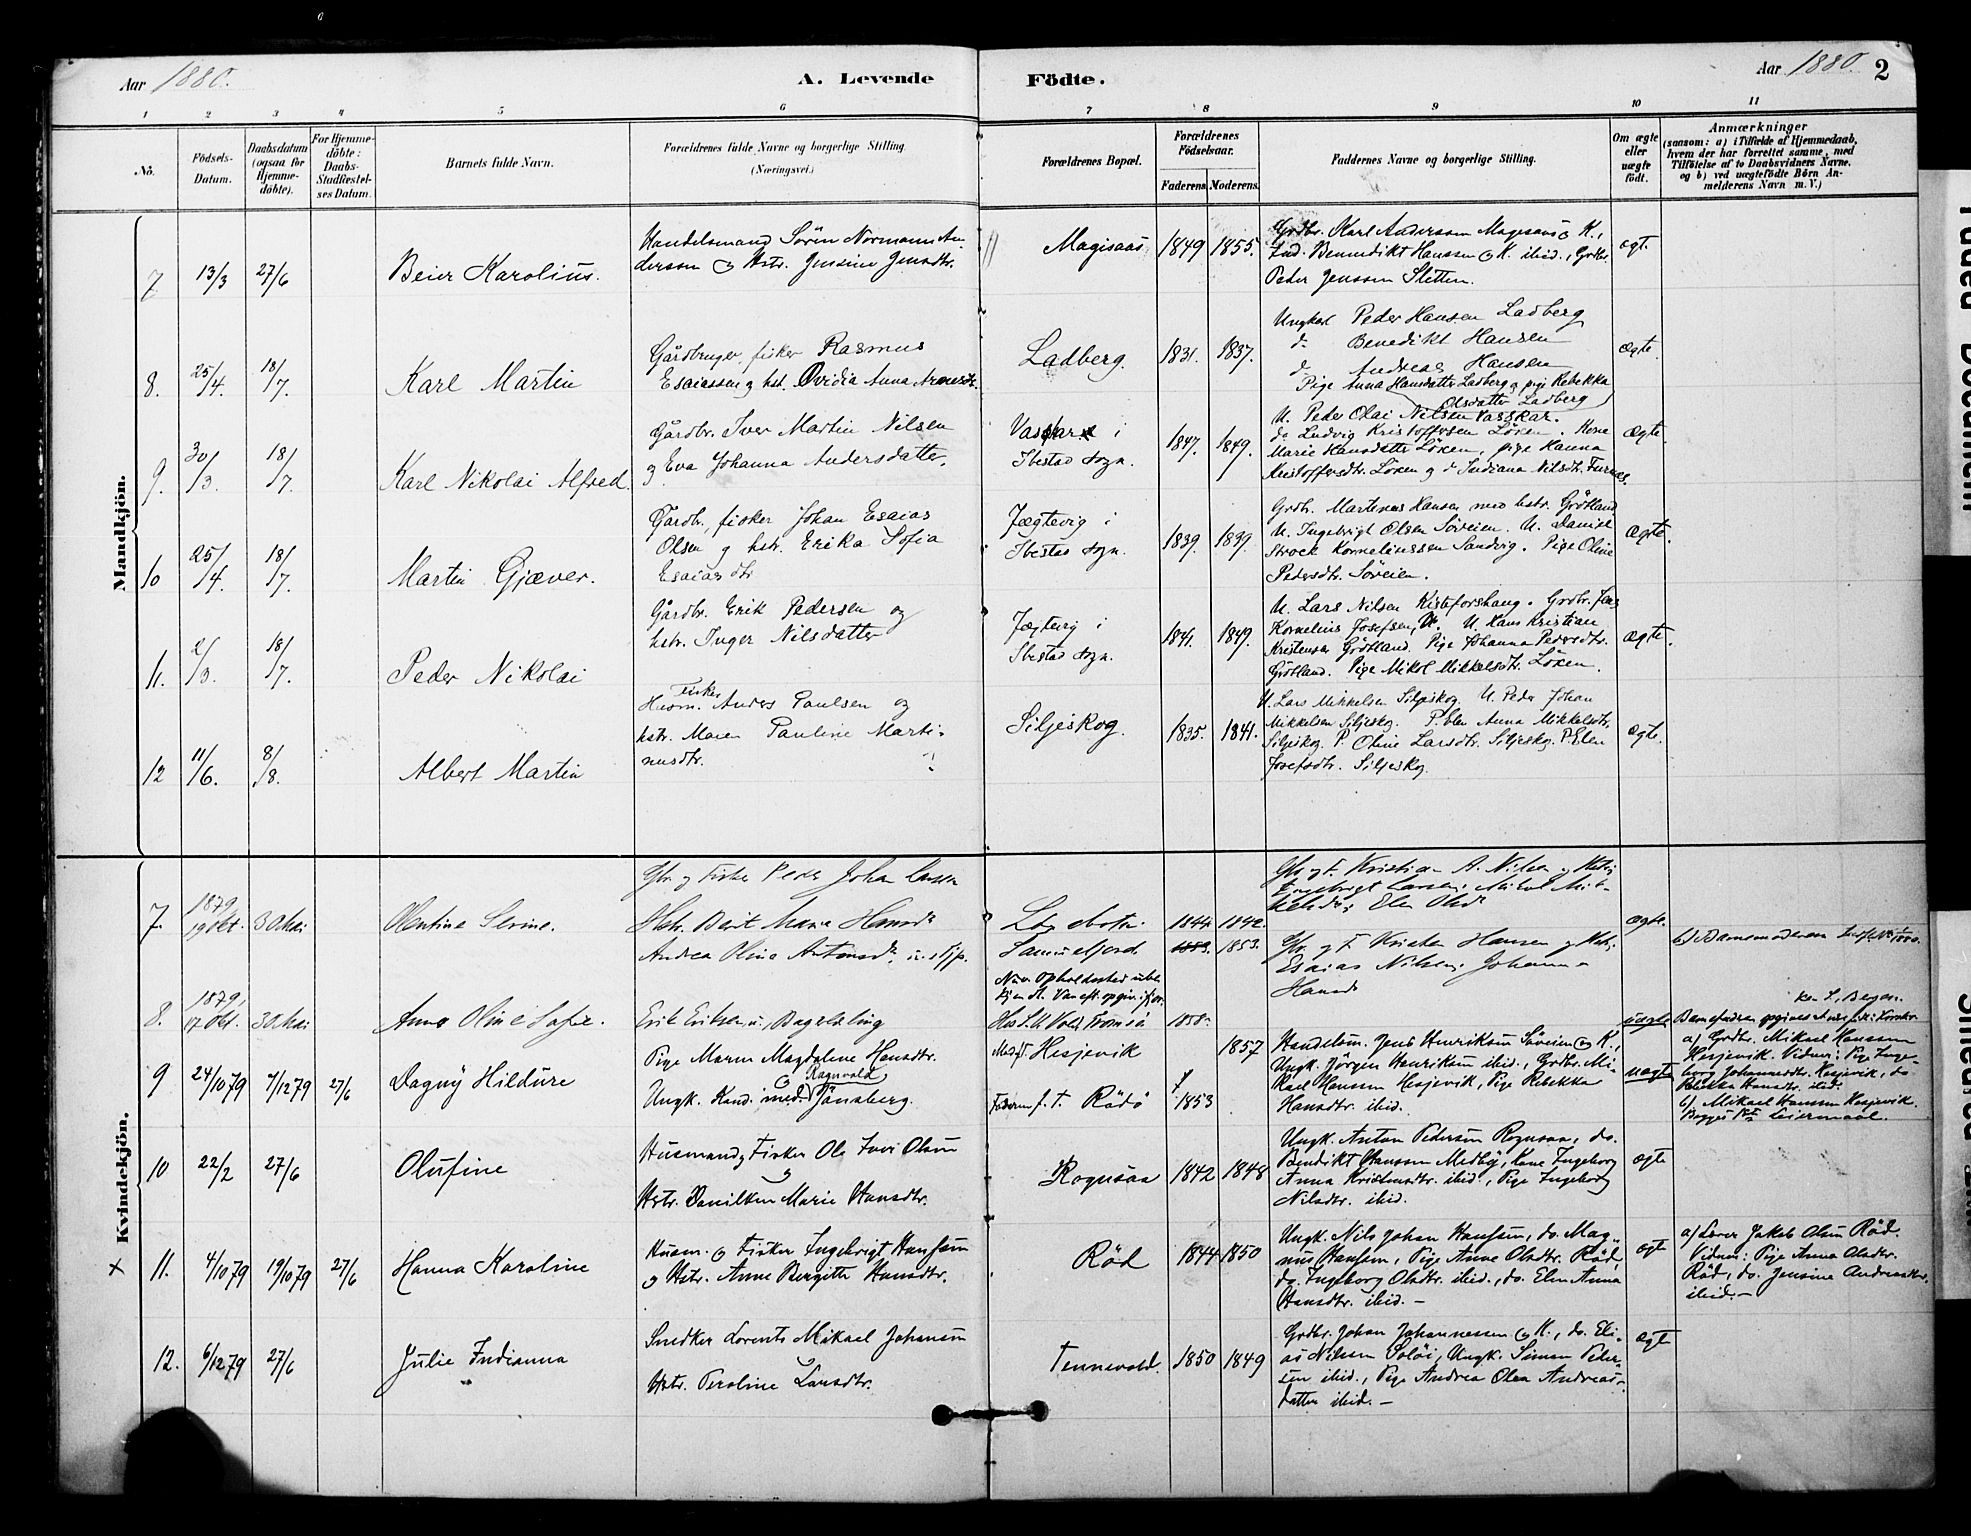 Aar 1880.
A. Levende Födte.
Aar 1880. 2
1 2 3 4 5 6 7 8 9 10 11
No.
Födsels-
Datum.
Daabsdatum
(ogsaa for
Hjemme-
döbte).
For Hjemme-
döbte:
Daabs-
Stadfæstel-
ses Datum.
Barnets fulde Navn.
Forældrenes fulde Navne og borgerlige Stilling.
(Næringsvei.)
Forældrenes Bopæl.
Forældrenes
Födselsaar.
Faderens. Moderens.
Faddernes Navne og borgerlige Stilling.
Om ægte
eller
uægte
födt.
Anmærkninger
(saasom: a) i Tilfælde af Hjemmedaab,
hvem der har forrettet samme, med
Tilföielse af to Daabsvidners Navne,
og b) ved uægtefödte Børn An-
melderens Navn m. V.)
Mandkjön.
7 13/3 27/6 Beier Karolius.
Handelsmand Sörin Normann An-
dersen og Hstr. Jensine Jensdtr.
Magisaas 1849 1855.
Grdbr. Karl Andersen Magisaas og K.,
Ind. Benedikt Hanssen og K. ibid., Grdbr.
Peder Jenssen Sletten.
ægt.
8. 25/4. 18/7. Karl Martin
Gårdbruger, fisker Rasmus
Esaiassen og hst. Ovidia Anna
Ladberg. 1831. 1837.
Ungkarl Peder Hansen Ladberg
d. Benedikt Hansen
d. Andreas Hansen
Pige Anna Hansdatter Ladberg og pige Rebekka
Olsdatter Ladberg
ægte.
9. 30/3. 18/7. Karl Nikolai Alfred.
Gårdbr. Iver Martin Nilsen
og Eva Johanna Andersdatter.
i
Ibestad sogn.
1847. 1849.
U. Peder Olai Nilsen Vasskar.
do Ludvig Kristoffersen Löken. Kone
Marie Hansdatter Löken, pige Hanna
Kristoffersdtr. Löken og d. Indiana Nilsdtr. Furnes.
ægte.
10 25/4. 18/7. Martin Gjæver.
Gårdbr., fisker Johan Esaias
Olsen og hstr. Erika Sofia
Esaiasdtr
Jægtevig i
Ibestad sogn.
1839. 1839.
Grdb. Martinus Hansen med hstr. Grötland
U. Ingebrigt Olsen Söveien. U. Daniel
Strock Korneliussen Sandvig. Pige Oline
Pedersdtr. Söveien.
ægte.
11. 2/3. 18/7. Peder Nikolai
Gårdbr. Erik Pedersen og
hstr. Inger Nilsdatter
Jægtevig i
Ibestad sogn.
1841. 1849.
U. Lars Nilsen Kisteforshaug. Grdbr.
Kornelius Josefsen, U. Hans Kristian
Kristensen Grötland. Pige Johanna Pedersdtr.
Grötland. Pige Mikol Mikkelsdtr. Löken.
ægte.
12 11/6. 8/8. Albert Martin
Fisker
Husm. Anders Paulsen og
hstr. Maren Pauline Marti-
nusdtr.
Siljeskog. 1835. 1841.
U. Lars Mikkelsen Siljeskog. U. Peder Johan
Mikkelsen Siljeskog. P. Elen Anna Mikkelsdtr.
Siljeskog. P. Oline Larsdtr. Siljeskog. P. Elen
Josefsdtr. Siljeskog.
ægte.
Kvindekjön.
7. 1879, 19 Okt. 30 Mai Olentine Serine.
Gbr. og Fisker Peder Johan Larsen
Hstr. Berit Maria Hansdr
1844 1842.
Gbr. og F. Kristian A. Nilsen og Hstr.;
Ingebrigt Larsen; Mikol Mik-
kelsdr; Elen Olsdr
ægte.
8. 1879, 17 Okt. 30 Mai Anna Oline Sofie.
Andrea Oline Antonsdr,
Erik Eriksen,
1853. 1853.
1858.
Gbr. og F. Kristen Hansen og Hstr.;
Esaias Nilsen; Johanna
Hansdr
uægte
b) Barnemoderen
Barnefaderen opgives
9 24/10 79 7/12 79 27/6 Dagny Hildure
Pige Maren Magdalene Hansdtr.
og Ragnvald
Ungk. Kand. med. Jönsberg.
Hesjevik 1857
Faderen f. t. Rödö 1853
Handelsm. Jens Henriksen Söveien og K.,
Ungk. Jörgen Henriksen ibid., Grdbr. Mi-
kael Hanssen Hesjevik, Pige Rebekka
Hansdtr. ibid.
uægte
a) Grdbr. Mikael Hanssen
Hesjevik. Vidner: Pige Inge-
borg Johannesdtr. Hesjevik, do.
Rebekka Hansdtr. ibid.
b) Mikael Hanssen Hesjevik.
Begges 1ste Leiermaal.
10 22/2 27/6 Olufine
Husmand og Fisker Ole Ivar Olsen
og
Hstr. Danilken Marie Hansdtr.
Rognsaa 1842 1848
Ungk. Anton Pedersen Rognsaa, do.
Bendikt Hanssen Medby, Kone Ingeborg
Anna Kristensdtr. ibid., Pige Ingeborg
Nilsdtr. ibid.
ægte
× 11. 4/10 79 19/10 79 27/6 Hanna Karoline
Husm. og Fisker Ingebrigt Hanssen
og Hstr. Anne Bergitte Hansdtr.
Röd 1844 1850
Ungk. Nils Johan Hanssen, do. Mag-
nus Hanssen, Pige Anne Olsdtr. Röd,
do. Ingeborg Olsdtr. ibid., do. Elen Anna
Hansdtr. ibid. —
ægt
a) Lærer Jakob Olsen Röd.
Vidner: Pige Anna Olsdtr.
Röd, do. Jensine Andreasdtr.
ibid. —
12. 6/12 79 27/6 Julie Indianna
Snedker Lorents Mikael Johansen
og
Hstr. Peroline Larsdtr.
Tennevold. 1850 1849
Grdbr. Johan Johannessen og K., do. Eli-
as Nilsen Soløi, Ungk. Simon Peder-
sen ibid., Pige Andrea Olea Andreas-
datter ibid. —
ægt